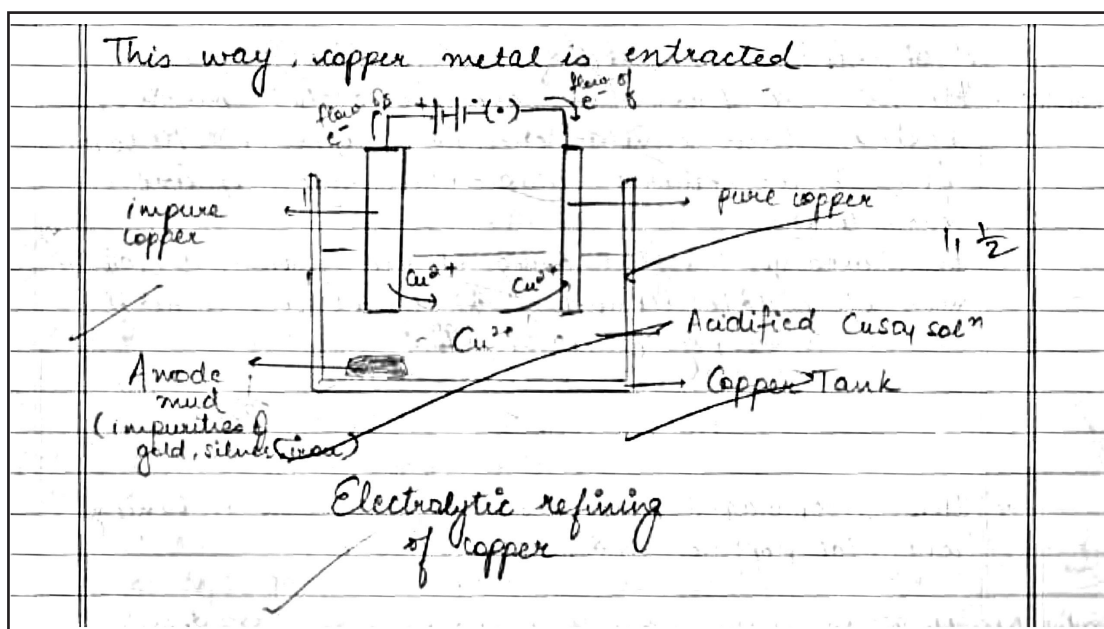 This way, copper metal is entracted.
flow of
e⁻
+
-
(•)
flow of
e⁻
impure
copper
pure copper
1, 1/2
Cu²⁺
Cu²⁺
Cu²⁺
Acidified CuSO4 solⁿ
Copper Tank
Anode
mud
(impurities of
gold, silver, iron)
Electrolytic refining
of copper